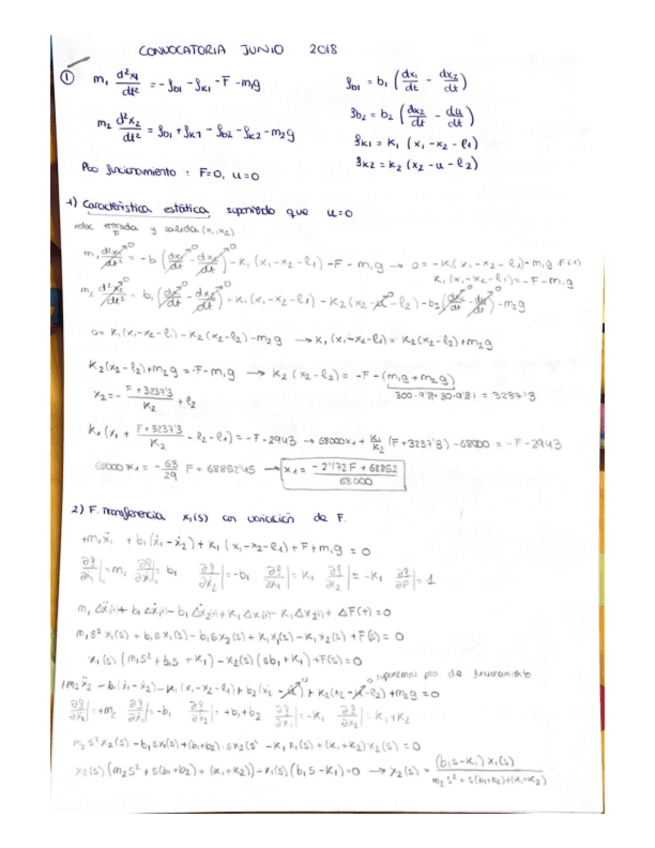 CONVOCATORIA JUNIO 2018
① m₁ d²x₁/dt² = -f_b1 - f_k1 - F - m₁g
f_b1 = b₁ (dx₁/dt - dx₂/dt)
m₂ d²x₂/dt² = f_b1 + f_k1 - f_b2 - f_k2 - m₂g
f_b2 = b₂ (dx₂/dt - du/dt)
f_k1 = k₁ (x₁ - x₂ - l₁)
f_k2 = k₂ (x₂ - u - l₂)
Pto funcionamiento : F=0, u=0
1) Característica estática suponiendo que u=0
relac entrada y salida (x₁, x₂)
F
m₁ d²x₁/dt² = -b (dx₁/dt - dx₂/dt) - k₁ (x₁ - x₂ - l₁) - F - m₁g → 0 = -k₁(x₁ - x₂ - l₁) - m₁g - F(t)
k₁(x₁ - x₂ - l₁) = -F - m₁g
m₂ d²x₂/dt² = b₁ (dx₁/dt - dx₂/dt) + k₁ (x₁ - x₂ - l₁) - k₂ (x₂ - u - l₂) - b₂ (dx₂/dt - du/dt) - m₂g
0 = k₁(x₁ - x₂ - l₁) - k₂(x₂ - l₂) - m₂g → k₁(x₁ - x₂ - l₁) = k₂(x₂ - l₂) + m₂g
k₂(x₂ - l₂) + m₂g = -F - m₁g → k₂(x₂ - l₂) = -F - (m₁g + m₂g)
300·9'81 + 30·9'81 = 3237'3
x₂ = - (F + 3237'3)/k₂ + l₂
k₁ (x₁ + (F + 3237'3)/k₂ - l₂ - l₁) = -F - 2943 → 68000x₁ + k₁/k₂ (F + 3237'3) - 68000 = -F - 2943
68000 x₁ = - 63/29 F + 68852'45 → x₁ = (-2'172 F + 68852)/68000
2) F. Transferencia x₁(s) con variación de F.
+m₁ẍ₁ + b₁(ẋ₁ - ẋ₂) + k₁ (x₁ - x₂ - l₁) + F + m₁g = 0
m₁ Δẍ₁(t) + b₁ Δẋ₁(t) - b₁ Δẋ₂(t) + k₁ Δx₁(t) - k₁ Δx₂(t) + ΔF(t) = 0
m₁s² x₁(s) + b₁s x₁(s) - b₁s x₂(s) + k₁x₁(s) - k₁x₂(s) + F(s) = 0
x₁(s) (m₁s² + b₁s + k₁) - x₂(s) (sb₁ + k₁) + F(s) = 0
suponemos pto de funcionamiento
+m₂ẍ₂ - b₁(ẋ₁ - ẋ₂) - k₁(x₁ - x₂ - l₁) + b₂(ẋ₂ - u̇) + k₂(x₂ - u - l₂) + m₂g = 0
m₂s²x₂(s) - b₁sx₁(s) + (b₁+b₂)·sx₂(s) - k₁x₁(s) + (k₁+k₂)x₂(s) = 0
x₂(s) (m₂s² + s(b₁+b₂) + (k₁+k₂)) - x₁(s) (b₁s - k₁) = 0 → x₂(s) = (b₁s - k₁) x₁(s) / (m₂s² + s(b₁+b₂) + (k₁+k₂))